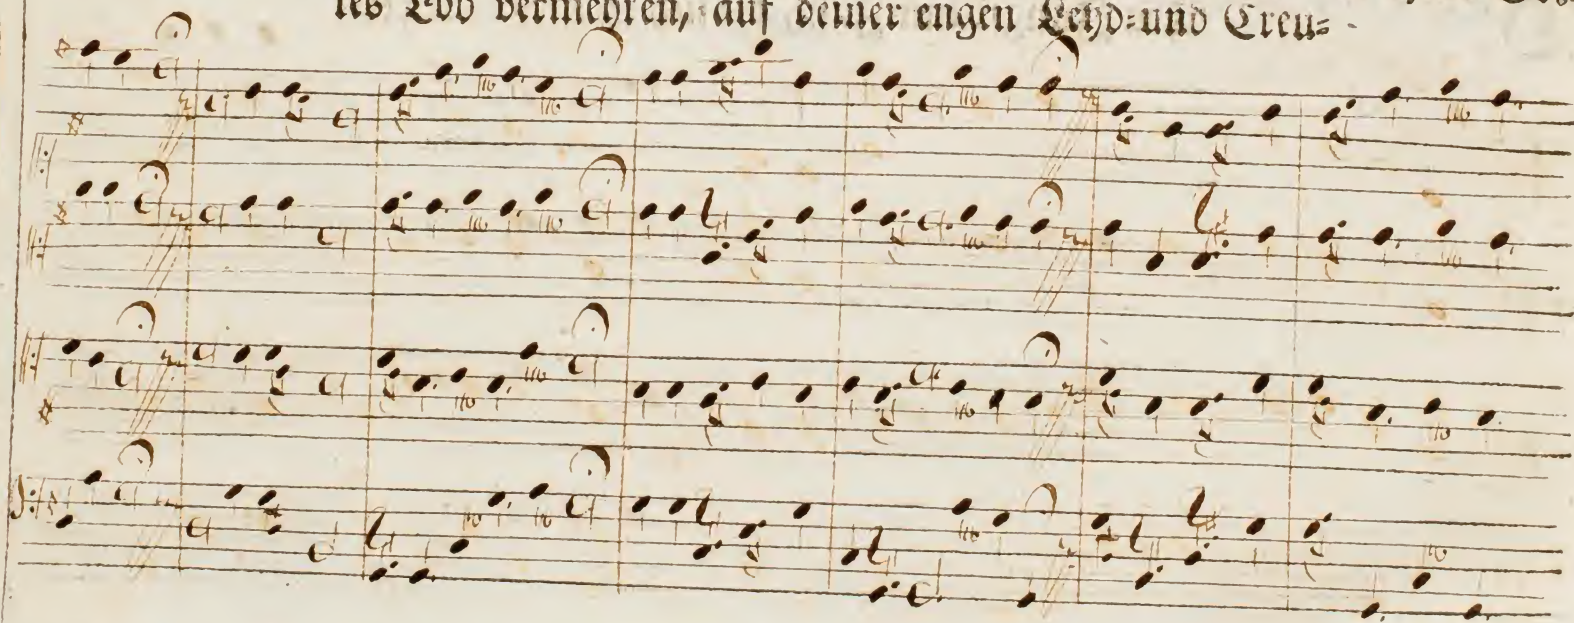 les Lob vermehren, auf deiner engen Leyd-und Creu-